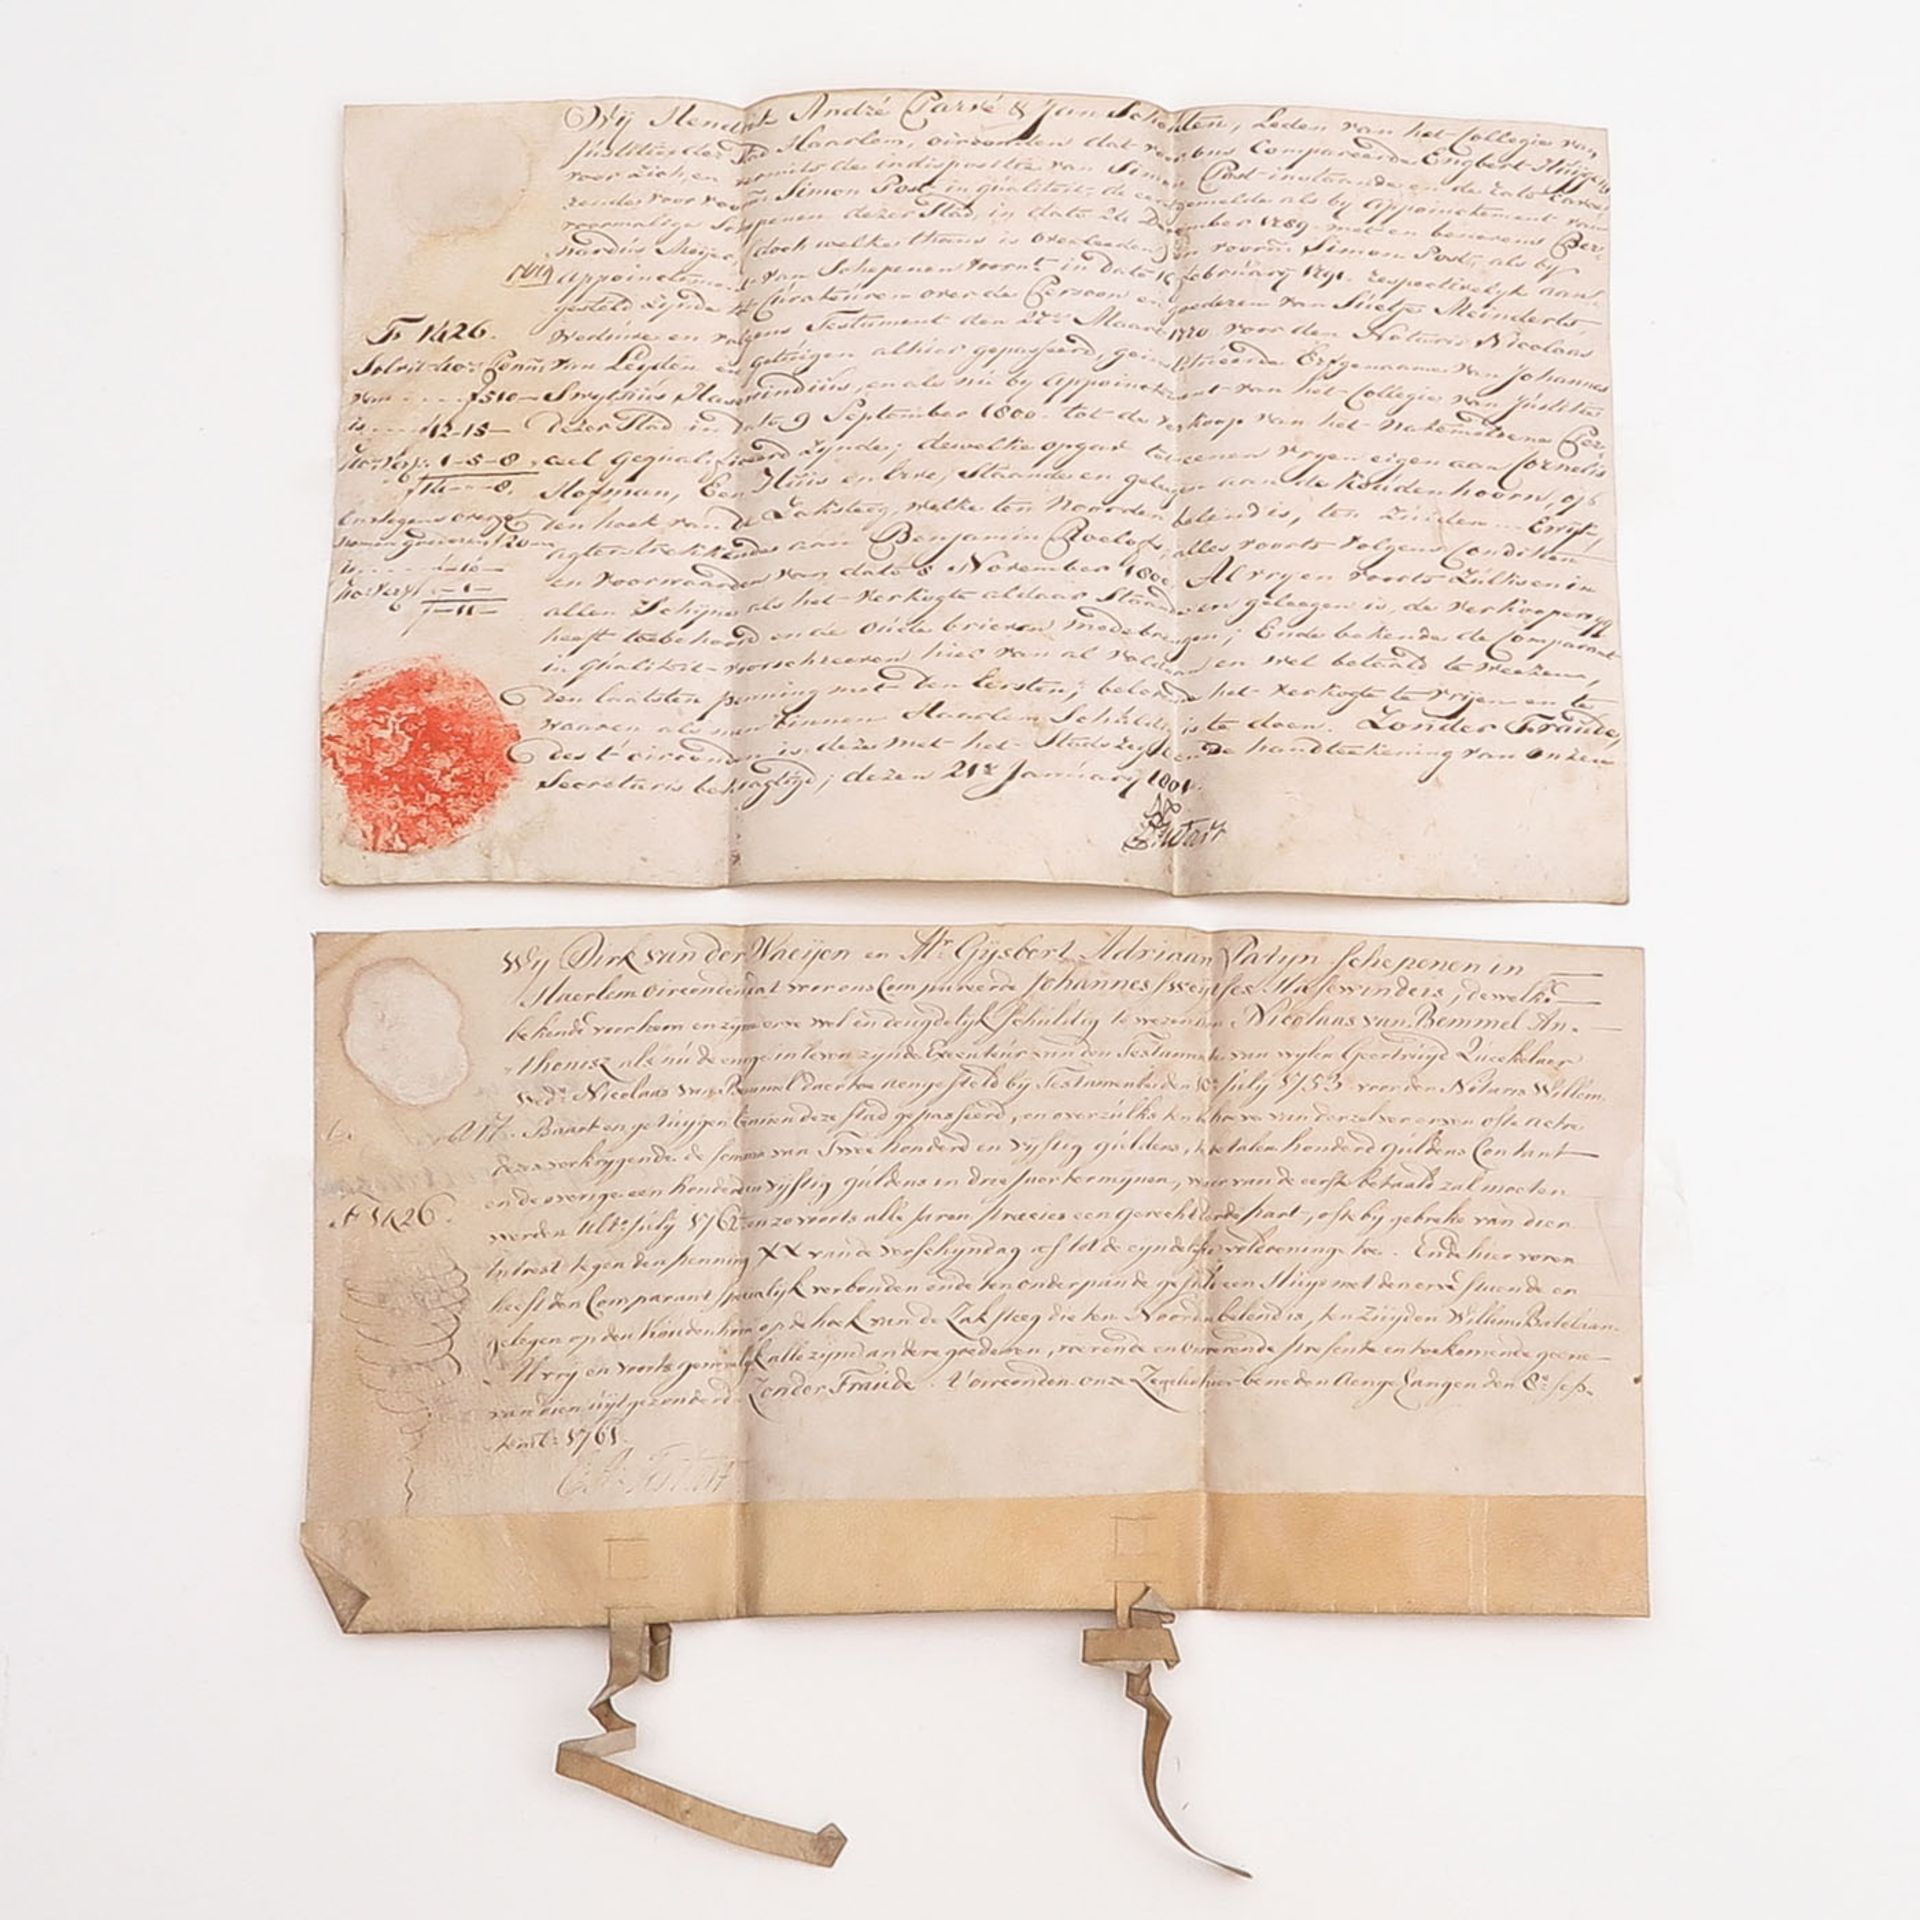 Wij Hendrik André Carré & Jan Scholten, Leden van het Collegie van
Justitie der Stad Haarlem, oirconden dat voor ons Compareerde Engbert
voor zich, en vermits de indispositie van Simon Post
zende voor voorm: Simon Post, in qualiteit de eerstgemelde als by appoinctement van
voormalige Schepenen dezer Stad, in dato 24 December 1789. met en benevens Ber-
nardus Meijer, (doch welke thans is overleeden) en voorm: Simon Post, als by
appoinctement van Schepenen voornt. in dato 16 February 1791. respectivelyk aan-
gesteld zynde tot Curateuren over de Persoon en goederen van Sietje Meinderts,
F 1426.
Weduwe en volgens Testament den 27e Maart 1770 voor den Notaris Nicolaas
van Leyden en getuigen alhier gepasseerd, geinstitueerde Erfgenaame van Johannes
van f 510 Sweytsius Hasewindius, en als nu by appoinctement van het Collegie van Justitie
is 12-15- dezer Stad in dato 9 September 1800. tot de verkoop van het natemeldene Per-
1-5-8 ceel gequalificeerd zynde; dewelke opgaf te eenen vryen eigen aan Cornelis
f14--8. Hofman, Een Huis en erve, Staande en gelegen aan de Koudenhoorn, op
den hoek van de Zaksteeg, welke ten Noorden belend is, ten Zuiden
agterstrekkende aan Benjamin Roelofs, alles voorts volgens Conditien
en voorwaarden van dato 8 November 1800. Al vry en voorts zulks en in
allen Schyne als het verkogte aldaar Staande en geleegen is, de verkooper qq
heeft toebehoord en de Oude brieven medebrengen; Ende bekende de Comparant
in qualiteit voorschreeven hier van al voldaan en wel betaald te weezen,
den laatsten penning met den eersten; beloovende het verkogte te vryen en te
waaren als men binnen Haarlem Schuldig is te doen. Zonder Fraude,
Des t' oirconden is deze met het Stads zegel en de handteekening van onzen
Secretaris bekragtigd; dezen 21e January 1801.
Wij Dirk van der Waeijen en Mr. Gijsbert Adriaan Patijn Schepenen in
Haerlem oirconden dat voor ons Compareerde Johannes Sweytses Hasewindeis, dewelke
bekende voor hem en zijne erve wel en deugdelijk schuldig te wezen aan Nicolaas van Bemmel An-
thonisz als nu de enige in leven zijnde Executeur van den Testamente van wylen Geertruyd Queekelaer
wede. Nicolaas van Bemmel daertoe aengesteld bij Testamente den 10e July 1753 voor den Notaris Willem
Baart en getuijgen binnen deze stad gepasseerd, en overzulks ten behoeve van derzelver erven ofte actie
dezes verkrygende de somma van Twee honderd en vijftig guldens, te betalen honderd guldens Contant
en de overige een honderd en vijftig guldens in drie Jaer termijnen, waer van de eerste betaald zal moeten
F 1426.
werden ulto. July 1762 en zo voorts alle Jaren precies een gerecht derde part, ofte by gebreke van dien
Intrest tegen den penning XX van de verschyndag af tot de eyndelijke voldoeninge toe. Ende hier voren
heeft den Comparant specialijk verbonden ende ten onderpande gesteld een Huys met den erve staende en
gelegen op den Koudenhoorn op de hoek van de Zaksteeg die ten Noorden belend is, ten zuijden Willem Batelaan
Al vry en voorts generalijk alle zijne andere goederen, roerende en onroerende presente en toekomende geene
van dien uijtgezonderd. Zonder Fraude. t'oirconden onze Zegelen hier beneden aengehangen den 8e. Sep-
temb: 1761.